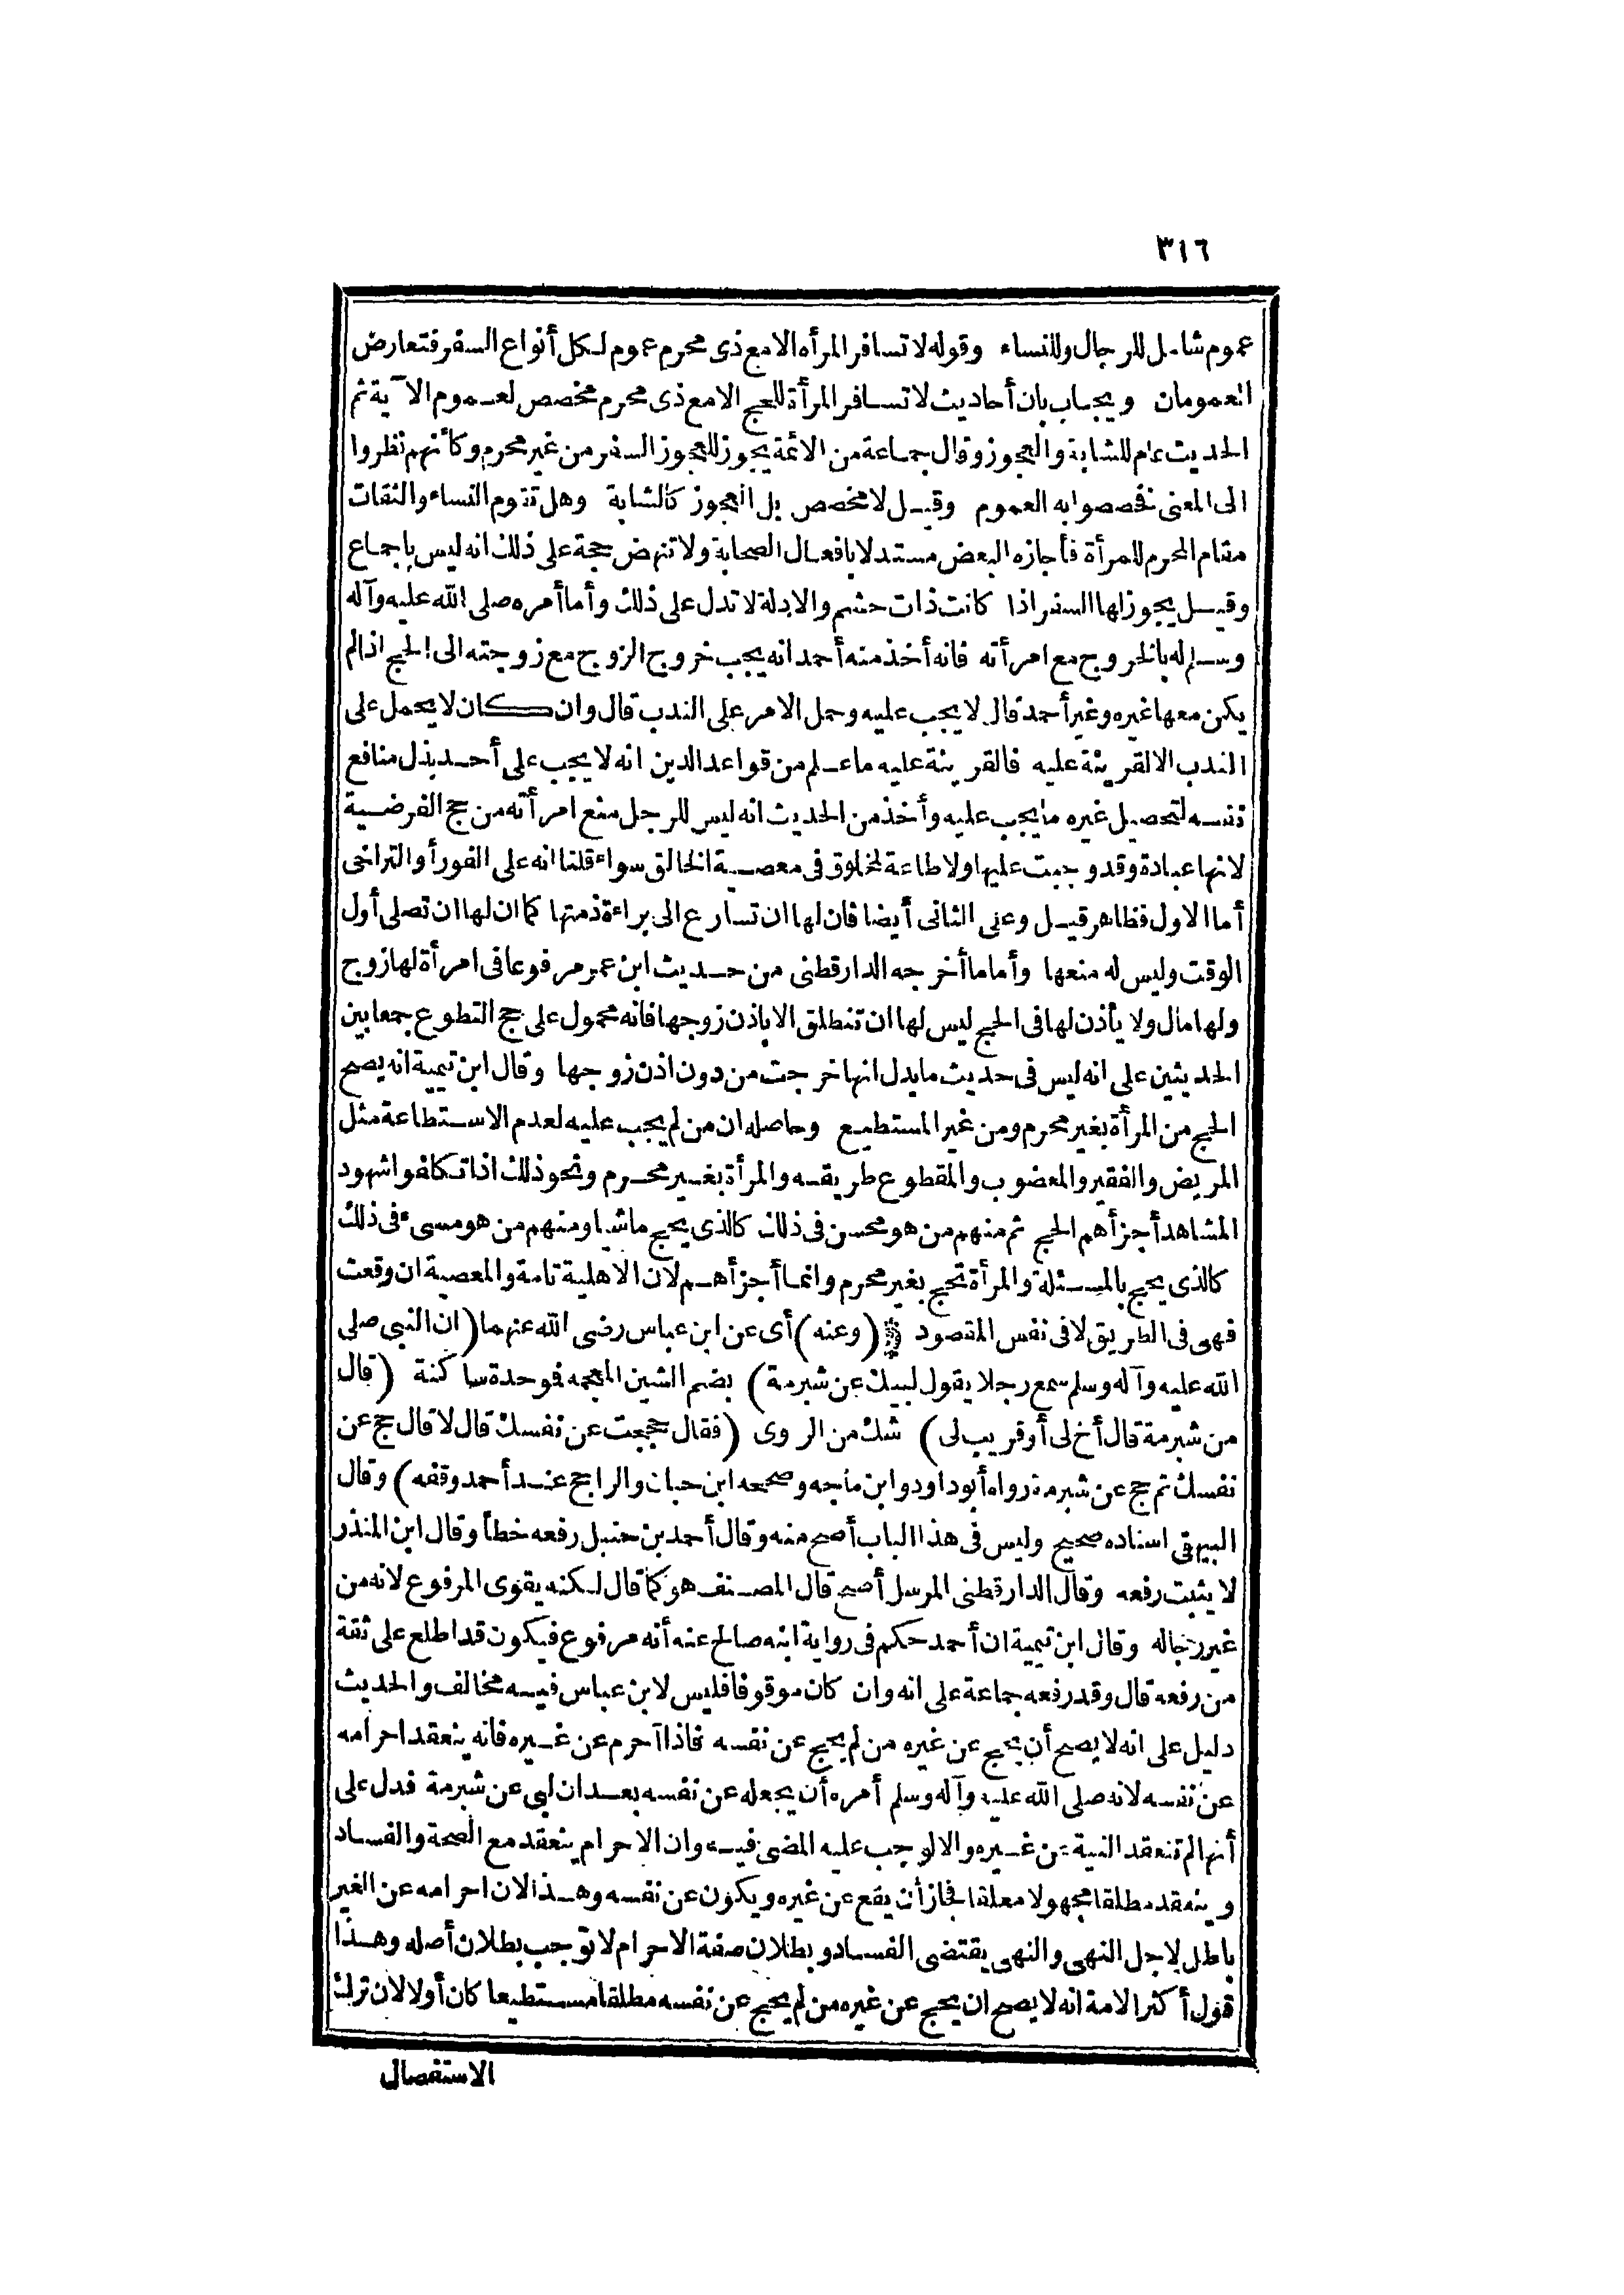 ٣١٦
عموم شامل للرجال وللنساء وقوله لا تسافر المرأه الا مع ذى محرم عموم لكل أنواع السفر فتعارض
العمومان ويجاب بان أحاديث لا تسافر المرأة للحج الا مع ذى محرم مخصص لعموم الآية ثم
الحديث عام للشابة والعجوز وقال جماعة من الائمة يجوز للعجوز السفر من غير محرم وكأنهم نظروا
الى المعنى فخصصوا به العموم وقيل لا مخصص بل العجوز كالشابة وهل تقوم النساء والثقات
مقام المحرم للمرأة فأجازه البعض مستدلا بافعال الصحابة ولا تنهض حجة على ذلك انه ليس باجماع
وقيل يجوز لها السفر اذا كانت ذات حشم والادلة لا تدل على ذلك وأما أمره صلى الله عليه وآله
وسلم له بالخروج مع امرأته فانه أخذ منه أحمد انه يجب خروج الزوج مع زوجته الى الحج اذا لم
يكن معها غيره وغير أحمد قال لا يجب عليه وحمل الامر على الندب قال وان كان لا يحمل على
الندب الا لقرينة عليه فالقرينة عليه ما علم من قواعد الدين انه لا يجب على أحد بذل منافع
نفسه لتحصيل غيره ما يجب عليه وأخذ من الحديث انه ليس للرجل منع امرأته من حج الفرضية
لانها عبادة وقد وجبت عليها ولا طاعة لمخلوق فى معصية الخالق سواء قلنا انه على الفور أو التراخى
أما الاول فظاهر قيل وعلى الثانى أيضا فان لها ان تسارع الى براءة ذمتها كما ان لها ان تصلى أول
الوقت وليس له منعها وأما ما أخرجه الدارقطنى من حديث ابن عمر مرفوعا فى امرأة لها زوج
ولها مال ولا يأذن لها فى الحج ليس لها ان تنطلق الا باذن زوجها فانه محمول على حج التطوع جمعا بين
الحديثين على انه ليس فى حديث ما يدل انها خرجت من دون اذن زوجها وقال ابن تيمية انه يصح
الحج من المرأة بغير محرم ومن غير المستطيع وحاصله ان من لم يجب عليه لعدم الاستطاعة مثل
المريض والفقير والمعضوب والمقطوع طريقه والمرأة بغير محرم ونحو ذلك اذا تكلفوا شهود
المشاهد أجزأهم الحج ثم منهم من هو محسن فى ذلك كالذى يحج ماشيا ومنهم من هو مسىء فى ذلك
كالذى يحج بالمسئلة والمرأة تحج بغير محرم وانما أجزأهم لان الاهلية تامة والمعصية ان وقعت
فهى فى الطريق لا فى نفس المقصود (وعنه) أى عن ابن عباس رضى الله عنهما (ان النبي صلى
الله عليه وآله وسلم سمع رجلا يقول لبيك عن شبرمة) بضم الشين المعجمه فوحدة ساكنة (قال
من شبرمة قال أخ لى أو قريب لى) شك من الروى (فقال حججت عن نفسك قال لا قال حج عن
نفسك ثم حج عن شبرمة رواه أبو داود وابن ماجه وصححه ابن حبان والراجح عند أحمد وقفه) وقال
البيهقى اسناده صحيح وليس فى هذا الباب أصح منه وقال أحمد بن حنبل رفعه خطأ وقال ابن المنذر
لا يثبت رفعه وقال الدارقطنى المرسل أصح قال المصنف هو كما قال لكنه يقوى المرفوع لانه من
غير رجاله وقال ابن تيمية ان أحمد حكم فى رواية ابنه صالح عنه أنه مرفوع فيكون قد اطلع على ثقة
من رفعه قال وقد رفعه جماعة على انه وان كان موقوفا فليس لابن عباس فيه مخالف والحديث
دليل على انه لا يصح أن يحج عن غيره من لم يحج عن نفسه فاذا أحرم عن غيره فانه ينعقد احرامه
عن نفسه لانه صلى الله عليه وآله وسلم أمره أن يجعله عن نفسه بعد ان لبى عن شبرمة فدل على
أنها لم تنعقد النية عن غيره والا لوجب عليه المضى فيه وان الاحرام ينعقد مع الصحة والفساد
وينعقد مطلقا مجهولا معلقا فجاز أن يقع عن غيره ويكون عن نفسه وهذا لان احرامه عن الغير
باطل لاجل النهى والنهى يقتضى الفساد وبطلان صفة الاحرام لا توجب بطلان أصله وهذا
قول أكثر الامة انه لا يصح ان يحج عن غيره من لم يحج عن نفسه مطلقا مستطيعا كان أو لا لان ترك
الاستفصال